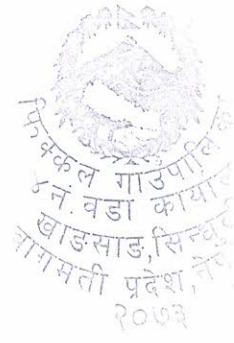 फिक्कल गाउपालि
४ नं. वडा कार्या
खाडसाड,सिन्धु
बागमती प्रदेश, ने
२०७३